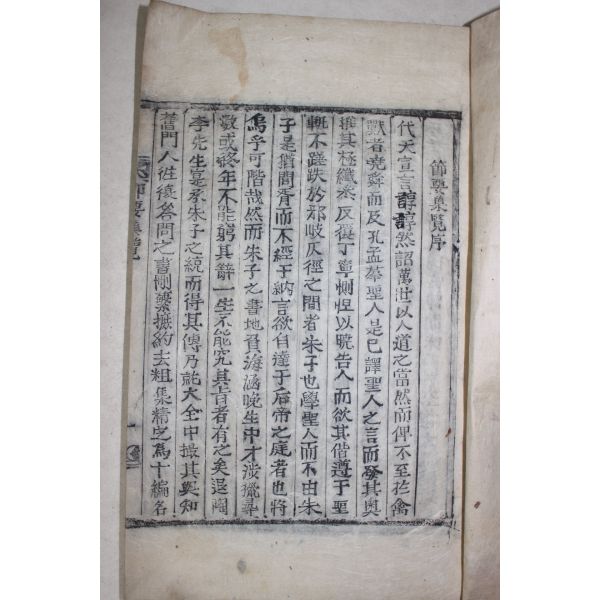 節要集覽序
代天宣言諄諄然詔萬世以人道之當然而俾不至於禽
獸者堯舜而及孔孟羣聖人是已譯聖人之言而發其奧
推其極纖柔反復丁寧惻怛以曉告人而欲其偕遵于聖
轍不蹉跌於邪岐仄徑之間者朱子也學聖人而不由朱
子是猶間胥而不經于納言欲自達于后帝之庭者也將
烏乎可階哉然而朱子之書地負海涵晚生中才涉獵尋
數或終年不能窮其辭一生不能究其旨者有之矣退陶
李先生寔承朱子之統而得其傳乃就大全中撮其與知
舊門人往復答問之書刪繁撫約去粗集精定爲十編名
節要集覽